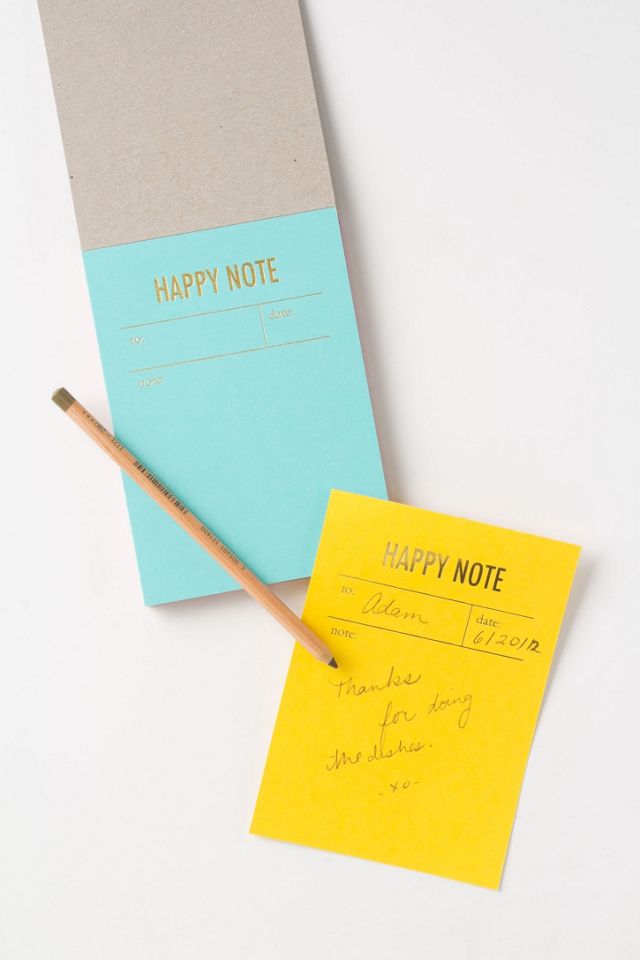 HAPPY NOTE
to:
date:
note:
HAPPY NOTE
to: Adam
date:
6/20/12
note:
Thanks
for doing
the dishes.
- xo -